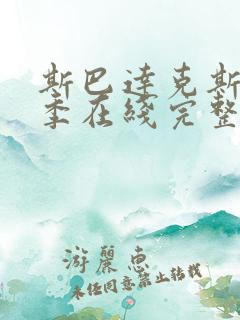 斯巴達克斯
季在綫完整
游麗惠
未经同意禁止转载